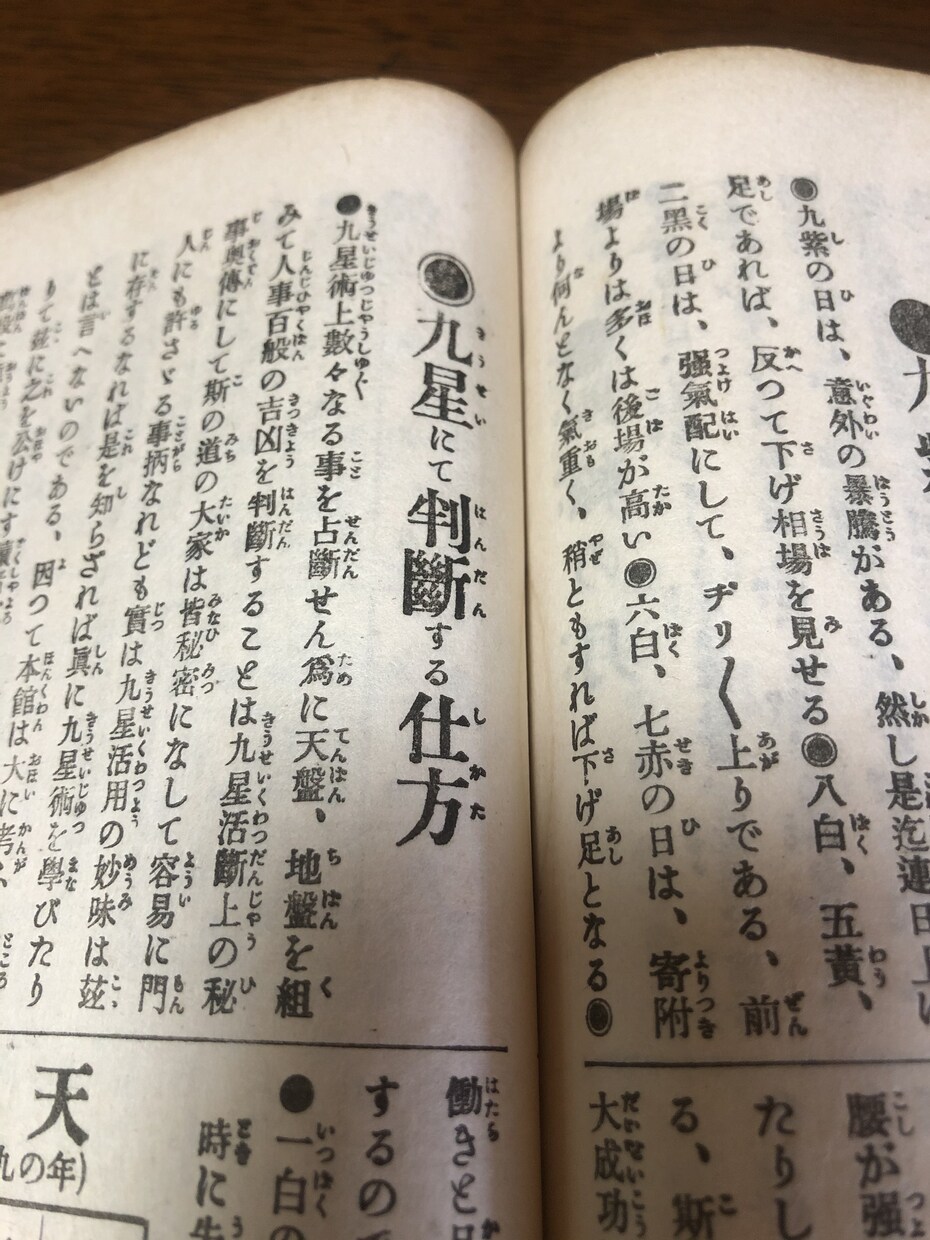 ●九紫の日は、意外の暴騰がある、然し是迄連日上
足であれば、反つて下げ相場を見せる◉八白、五黄、
二黒の日は、强氣配にして、ヂリ〳〵上りである、前
場よりは多くは後場が高い◉六白、七赤の日は、寄附
より何んとなく氣重く、稍ともすれば下げ足となる◉
腰が强
たりし
る、斯
大成功
◉九星にて判斷する仕方
●九星術上數々なる事を占斷せん爲に天盤、地盤を組
みて人事百般の吉凶を判斷することは九星活斷上の秘
事奥傳にして斯の道の大家は皆秘密になして容易に門
人にも許さゞる事柄なれども實は九星活用の妙味は玆
に存するなれば是を知らざれば眞に九星術を學びたり
とは言へないのである、因つて本館は大に考
りて玆に之を公けにす
働きと
するので
●一白の
時に
天
九の年)